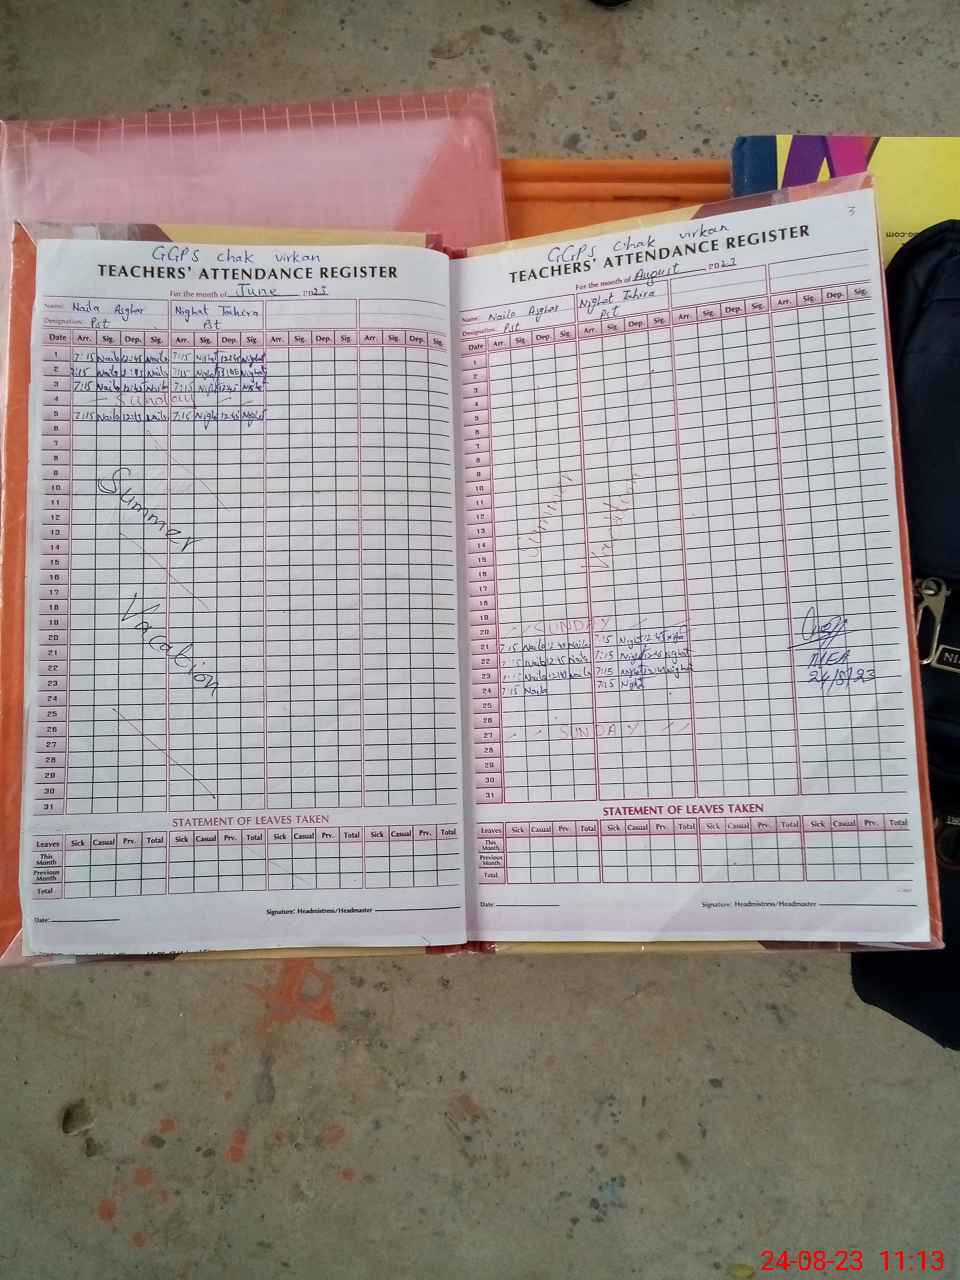 GGPS chak virkan
TEACHERS' ATTENDANCE REGISTER
For the month of June 2023
Name: Naila Asghar Nighat Tahira
Designation: Pst Pst
Date Arr. Sig. Dep. Sig. Arr. Sig. Dep. Sig. Arr. Sig. Dep. Sig. Arr. Sig. Dep. Sig.
1 7:15 Naila 12:45 Naila 7:15 Nighat 12:45 Nighat
2 7:15 Naila 12:45 Naila 7:15 Nighat Nighat
3 7:15 Naila 12:45 Naila 7:15 Nighat 12:45 Nighat
4 Sunday
5 7:15 Naila 12:45 Naila 7:15 Nighat 12:45 Nighat
6
7
8
9
10
11
12
13
14
15
16
17
18
19
20
21
22
23
24
25
26
27
28
29
30
31
Summer
Vacation
STATEMENT OF LEAVES TAKEN
Leaves Sick Casual Prv. Total Sick Casual Prv. Total Sick Casual Prv. Total Sick Casual Prv. Total
This Month
Previous Month
Total
Date:
Signature: Headmistress/Headmaster
3
GGPS chak virkan
TEACHERS' ATTENDANCE REGISTER
For the month of August 2023
Name: Naila Asghar Nighat Tahira
Designation: Pst Pst
Date Arr. Sig. Dep. Sig. Arr. Sig. Dep. Sig. Arr. Sig. Dep. Sig. Arr. Sig. Dep. Sig.
1
2
3
4
5
6
7
8
9
10
11
12
13
14
15
16
17
18
19
Summer
Vacation
20 SUNDAY
21 7:15 Naila 12:45 Naila 7:15 Nighat 12:45 Nighat
22 7:15 Naila 12:45 Naila 7:15 Nighat 12:45 Nighat
23 7:15 Naila 12:45 Naila 7:15 Nighat 12:45 Nighat
24 7:15 Naila 7:15 Nighat
25
26
27 SUNDAY
28
29
30
31
MEA
24/8/23
STATEMENT OF LEAVES TAKEN
Leaves Sick Casual Prv. Total Sick Casual Prv. Total Sick Casual Prv. Total Sick Casual Prv. Total
This Month
Previous Month
Total
Date:
Signature: Headmistress/Headmaster
24-08-23 11:13